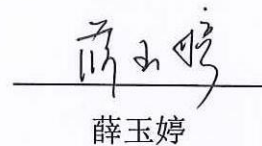 薛玉婷
薛玉婷